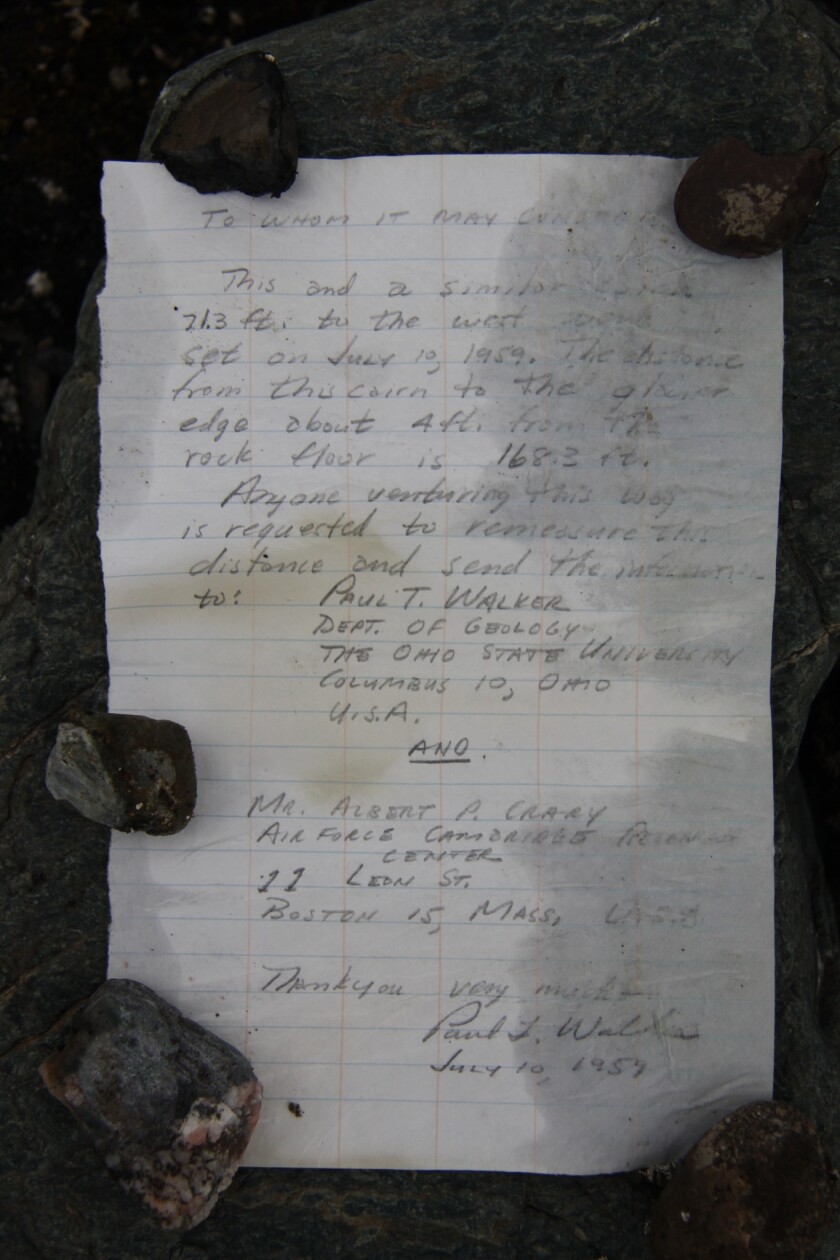 TO WHOM IT MAY CONCERN
This and a similar cairn
71.3 ft. to the west were
set on July 10, 1959. The distance
from this cairn to the glacier
edge about 4 ft. from the
rock floor is 168.3 ft.
Anyone venturing this way
is requested to remeasure this
distance and send the information
to: PAUL T. WALKER
DEPT. OF GEOLOGY
THE OHIO STATE UNIVERSITY
COLUMBUS 10, OHIO
U.S.A.
AND.
MR. ALBERT P. CRARY
AIR FORCE CAMBRIDGE RESEARCH
CENTER
11 LEON ST.
BOSTON 15, MASS, U.S.A.
Thankyou very much
Paul T. Walker
July 10, 1959